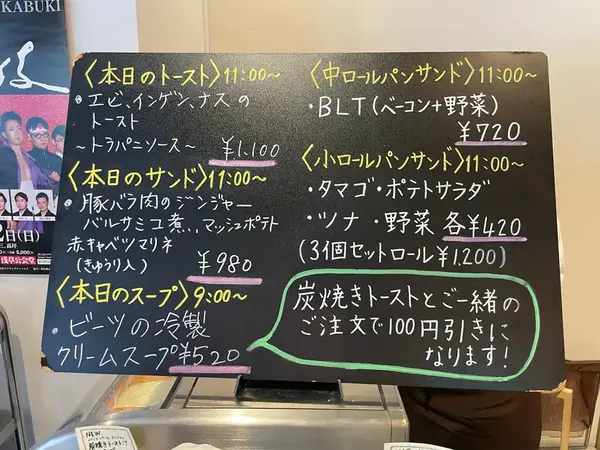 KABUKI
〈本日のトースト〉11:00~
・エビ、インゲン、ナスの
トースト
~トラパニソース~ ¥1.100
〈本日のサンド〉11:00~
・豚バラ肉のジンジャー
バルサミコ煮、、マッシュポテト
赤キャベツマリネ
(きゅうり入) ¥980
〈本日のスープ〉9:00~
・ビーツの冷製
クリームスープ¥520
〈中ロールパンサンド〉11:00~
・BLT(ベーコン+野菜)
¥720
〈小ロールパンサンド〉11:00~
・タマゴ・ポテトサラダ
・ツナ・野菜 各¥420
(3個セットロール¥1.200)
炭焼きトーストとご一緒の
ご注文で100円引きに
なります!
日(日)
浅草公会堂
NEW